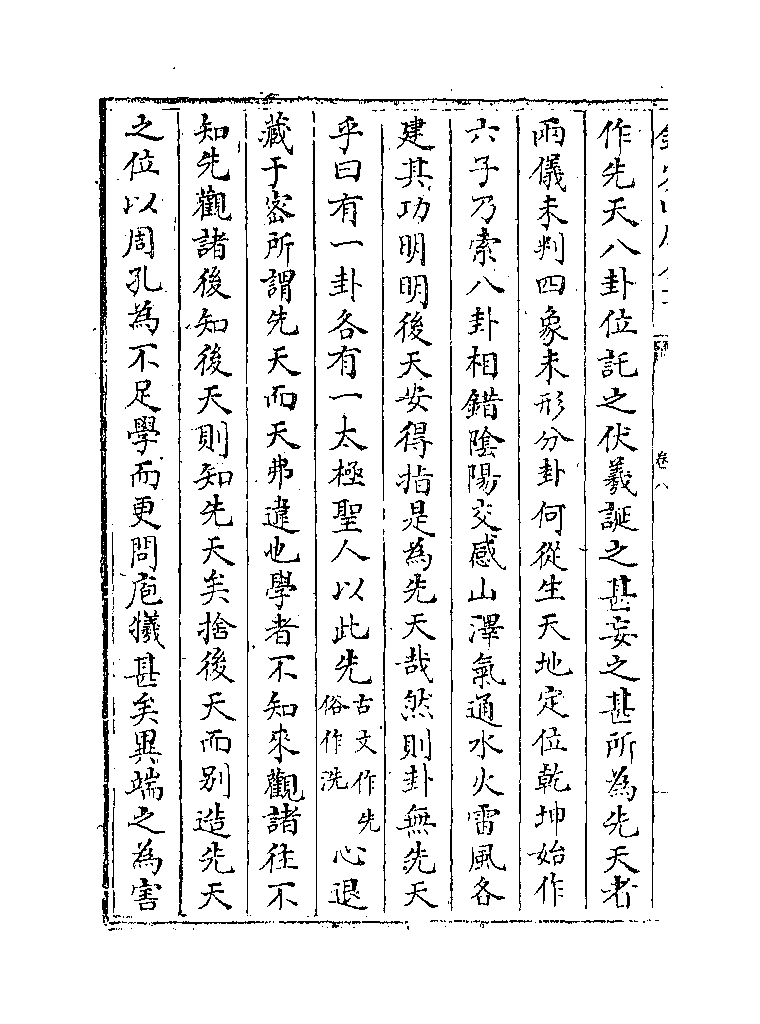 作先天八卦位託之伏羲誕之甚妄之甚所為先天者
兩儀未判四象未形分卦何從生天地定位乾坤始作
六子乃索八卦相錯陰陽交感山澤氣通水火雷風各
建其功明明後天安得指是為先天哉然則卦無先天
乎曰有一卦各有一太極聖人以此先古文作先俗作洗心退
藏于密所謂先天而天弗違也學者不知來觀諸往不
知先觀諸後知後天則知先天矣捨後天而別造先天
之位以周孔為不足學而更問庖犧甚矣異端之為害
卷八